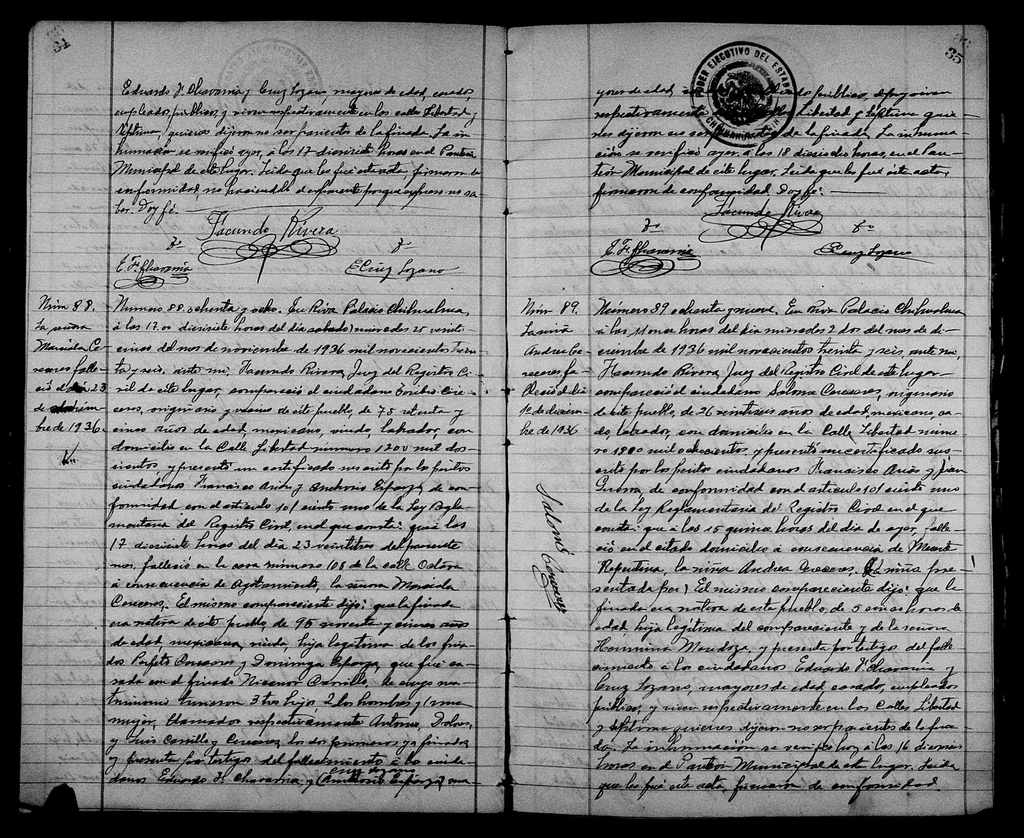 34
Eduardo F. Chavarria y Cruz Lozano, mayores de edad, casados,
empleados públicos, y viven respectivamente en las calles Libertad y
Séptima, quienes dijeron no ser parientes de la finada. La in-
humación se verificó ayer, á las 17 diecisiete horas en el Panteón
Municipal de este lugar. Leida que les fué esta acta, firmaron de
conformidad, no haciendolo el compareciente porque expresó no sa-
ber. Doy fé.
Facundo Rivera
E. F. Chavarria
E Cruz Lozano
Núm 88.
La señora
Marcisla Ce-
niceros falle-
ció el 23
de noviem-
bre de 1936
Número 88 ochenta y ocho. En Riva Palacio Chihuahua,
á las 17.00 diecisiete horas del día miercoles 25 veinti-
cinco del mes de noviembre de 1936 mil novecientos trein-
ta y seis, ante mi, Facundo Rivera, Juez del Registro Ci-
vil de este lugar, compareció el ciudadano Emilio Ceni-
ceros, originario y vecino de este pueblo, de 75 setenta y
cinco años de edad, mexicano, viudo, labrador, con
domicilio en la Calle Libertad número 1200 mil dos-
cientos, y presentó un certificado suscrito por los peritos
ciudadanos Francisco Arias y Anchonio Esparza, de con-
formidad con el artículo 101 ciento uno de la Ley Regla-
mentaria del Registro Civil, en el que consta: que á las
17 diecisiete horas del día 23 veintitres del presente
mes, falleció en la casa número 108 de la calle Octava
á consecuencia de Agotamiento, la señora Marcisla
Ceniceros. El mismo compareciente dijo: que la finada
era nativa de este pueblo, de 95 noventa y cinco años
de edad, mexicana, viuda, hija legítima de los fina-
dos Perfecto Ceniceros y Dominga Esparza, que fué ca-
sada con el finado Nicanor Carrillo, de cuyo ma-
trimonio tuvieron 3 tres hijos, 2 dos hombres y 1 una
mujer, llamados respectivamente Antonio, Dolores,
y Luis Carrillo y Ceniceros, los dos primeros ya finados,
y presenta por testigos del fallecimiento á los ciuda-
danos Eduardo F. Chavarria y Anchonio Esparza, ma-
35
PODER EJECUTIVO DEL ESTADO
CHIHUAHUA
yores de edad, empleados públicos, y viven
respectivamente Libertad y Séptima quie-
nes dijeron no ser parientes de la finada. La inhuma-
ción se verificó ayer, á las 18 dieciocho horas, en el Pan-
teón Municipal de este lugar. Leida que les fué esta acta,
firmaron de conformidad. Doy fé.
Facundo Rivera
E. F. Chavarria
E Cruz Lozano
Núm 89.
La niña
Andrea Ce-
niceros fa-
lleció el día
1º de diciem-
bre de 1936
Salomé Ceniceros
Número 89 ochenta y nueve. En Riva Palacio Chihuahua
á las 11 once horas del día miercoles 2 dos del mes de di-
ciembre de 1936 mil novecientos treinta y seis, ante mi,
Facundo Rivera, Juez del Registro Civil de este lugar
compareció el ciudadano Salomé Ceniceros, originario
de este pueblo, de 26 veintiseis años de edad, mexicano, casa-
do, labrador, con domicilio en la Calle Libertad núme-
ro 1800 mil ochocientos, y presentó un certificado sus-
crito por los peritos ciudadanos Francisco Arias y Juan
Guerra, de conformidad con el artículo 101 ciento uno
de la Ley Reglamentaria del Registro Civil en el que
consta: que á las 15 quince horas del día de ayer, falle-
ció en el citado domicilio á consecuencia de Muerte
Repentina, la niña Andrea Ceniceros. (La niña pre-
sentada por) El mismo compareciente dijo: que la
finada era nativa de este pueblo, de 5 cinco horas de
edad, hija legítima del compareciente y de la señora
Herminia Mendoza, y presenta por testigos del falle-
cimiento á los ciudadanos Eduardo F. Chavarria y
Cruz Lozano, mayores de edad, casados, empleados
públicos, y viven respectivamente en las Calles Libertad
y Séptima quienes dijeron no ser parientes de la fina-
da. La inhumación se verificó hoy á las 16 dieciseis
horas en el Panteón Municipal de este lugar. Leida
que les fué esta acta, firmaron de conformidad